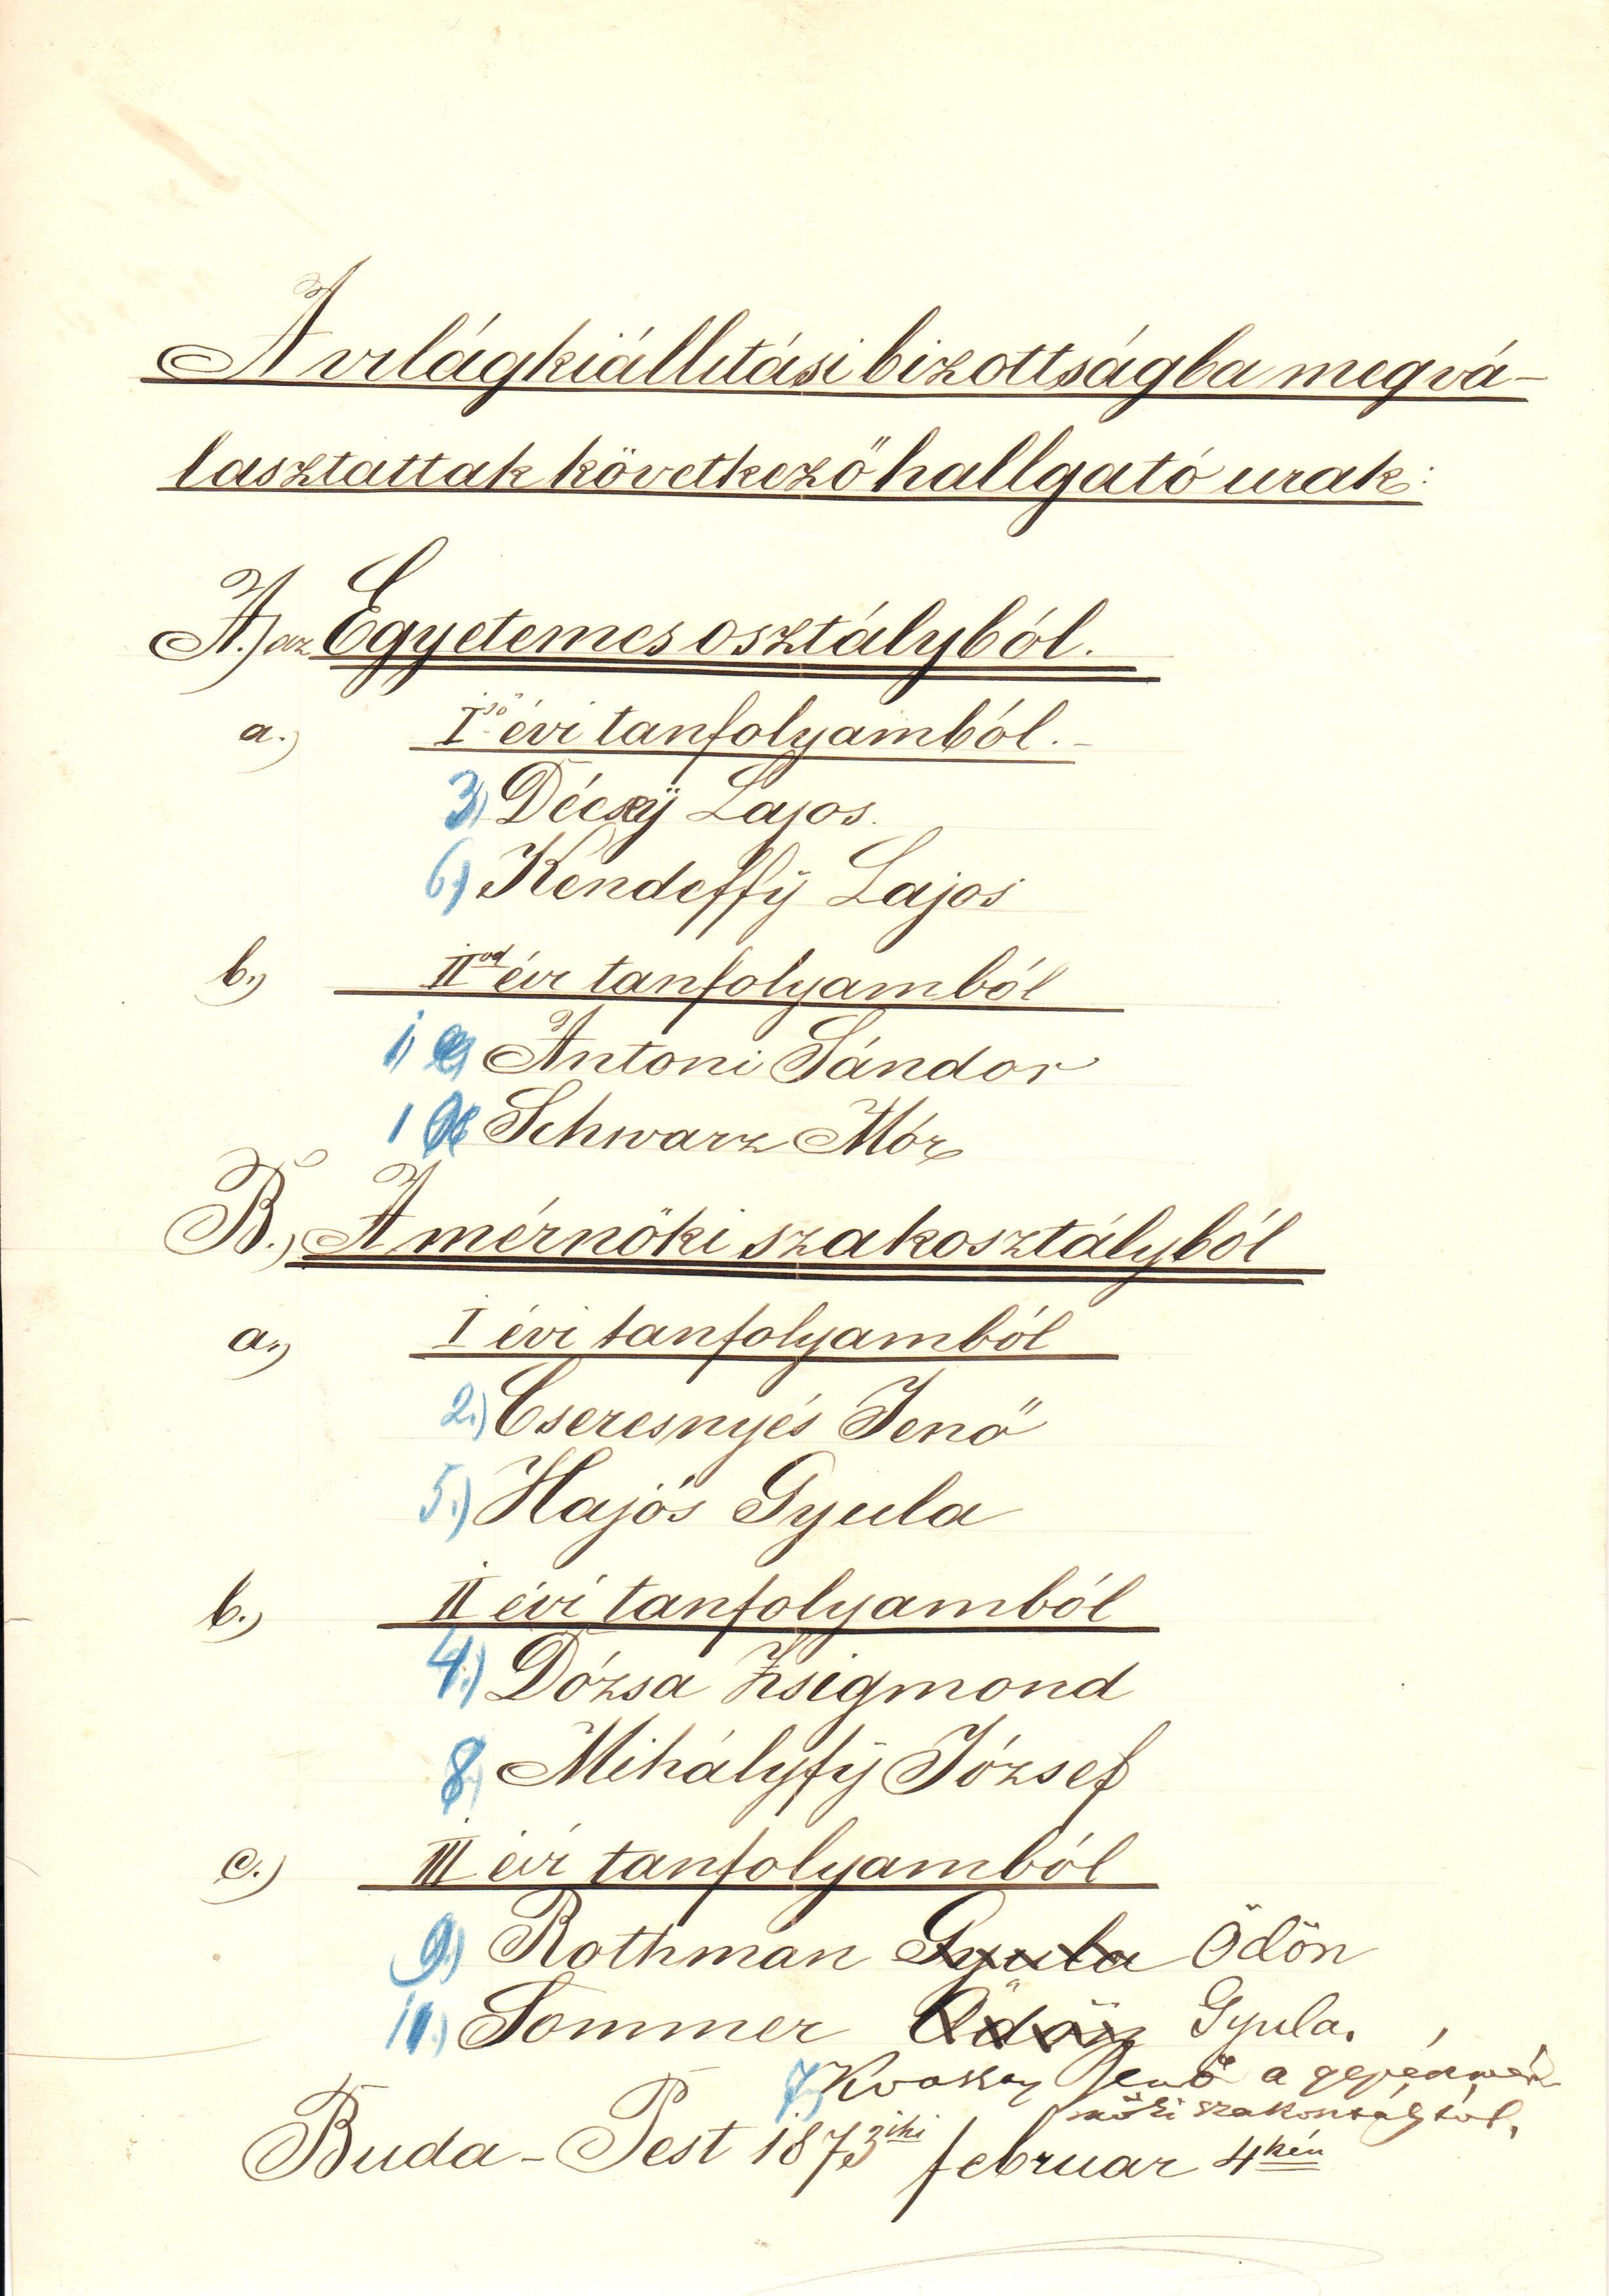 A világkiállítási bizottságba megvá-
lasztattak következő hallgató urak:
A.) az Egyetemes osztályból.
a.) I ső évi tanfolyamból.-
3) Décsÿ Lajos.
6) Kendeffÿ Lajos
b.) II od évi tanfolyamból
1) Antoni Sándor
10 Schwarz Mór
B.) A mérnöki szakosztályból
a.) I évi tanfolyamból
2.) Cseresnyés Jenő
5.) Hajós Gyula
b.) II évi tanfolyamból
4.) Dózsa Zsigmond
8) Mihályfÿ József
c.) III évi tanfolyamból
9.) Rothman Gyula Ödön
11.) Sommer Ödön Gyula.
7) Jenő a gépészmér-
nöki
Buda-Pest 1873 iki februar 4 kén